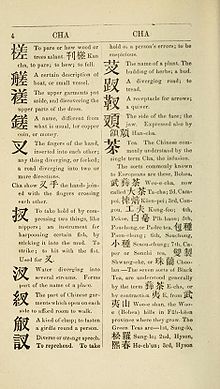 4 CHA
To pare or hew wood or
trees aslant.
ch'a, to pare; to hew; to fell.
A certain description of
boat, or small vessel.
The upper garments put
aside, and discovering the
upper parts of the dress.
A name, different from
what is usual, for copper
coin, or money.
叉 The fingers of the hand,
inserted into each other;
any thing diverging, or forked;
a road diverging into two or
more directions.
Cha show 叉手 the hands joined
with the fingers crossing
each other.
扠 To take hold of by compressing
two things, like
nippers; an instrument for
harpooning certain fish, by
sticking it into the mud. To
strike; to hit with the fist.
Used for 叉
汊 Water diverging into
several streams. Forms
part of the name of a place.
衩 The part of Chinese garments
which opens on each
side to afford room to walk.
A kind of clasp; to fasten
a girdle round a person.
Diverse or strange speech.
To reprehend. To take
CHA
hold on a person's errors; to be
suspicious.
The name of a plant. The
budding of herbs; a bud.
A diverging road; to
tread.
A receptacle for arrows;
a quiver.
The side of the face; the
jaw. Expressed also by
Han-cha.
茶 Tea. The Chinese commonly
understand by the
single term Cha, the infusion.
The sorts commonly known
to Europeans are these, Bohea,
武彝茶 Woo-e-cha, now
called 大茶 Ta-cha; 2d, Canpoi,
Keen-pei; 3d, Congou,
工夫 Kung-foo; 4th,
Pekoe, 白毫 Pih-haou; 5th,
Pouchong, or Padre tea, 包種
Paou-chung; 6th, Souchong,
小種 Seaou-chung; 7th, Caper
or Sonchi, 雙製
Shwang-che, or 珠蘭 Choo-lan
cha—The seven sorts of Black
Tea, are understood by the
general term 武彝茶
or by contraction
武夷山 Woo-e shan, the Woo-e
(Bohea) hills in Füh-këen
province where they grow. The
Green Teas are—1st, Sung-lo,
松蘿 Sung-lo; 2d, Hyson
熙春 He-chun; 3rd, Hyson